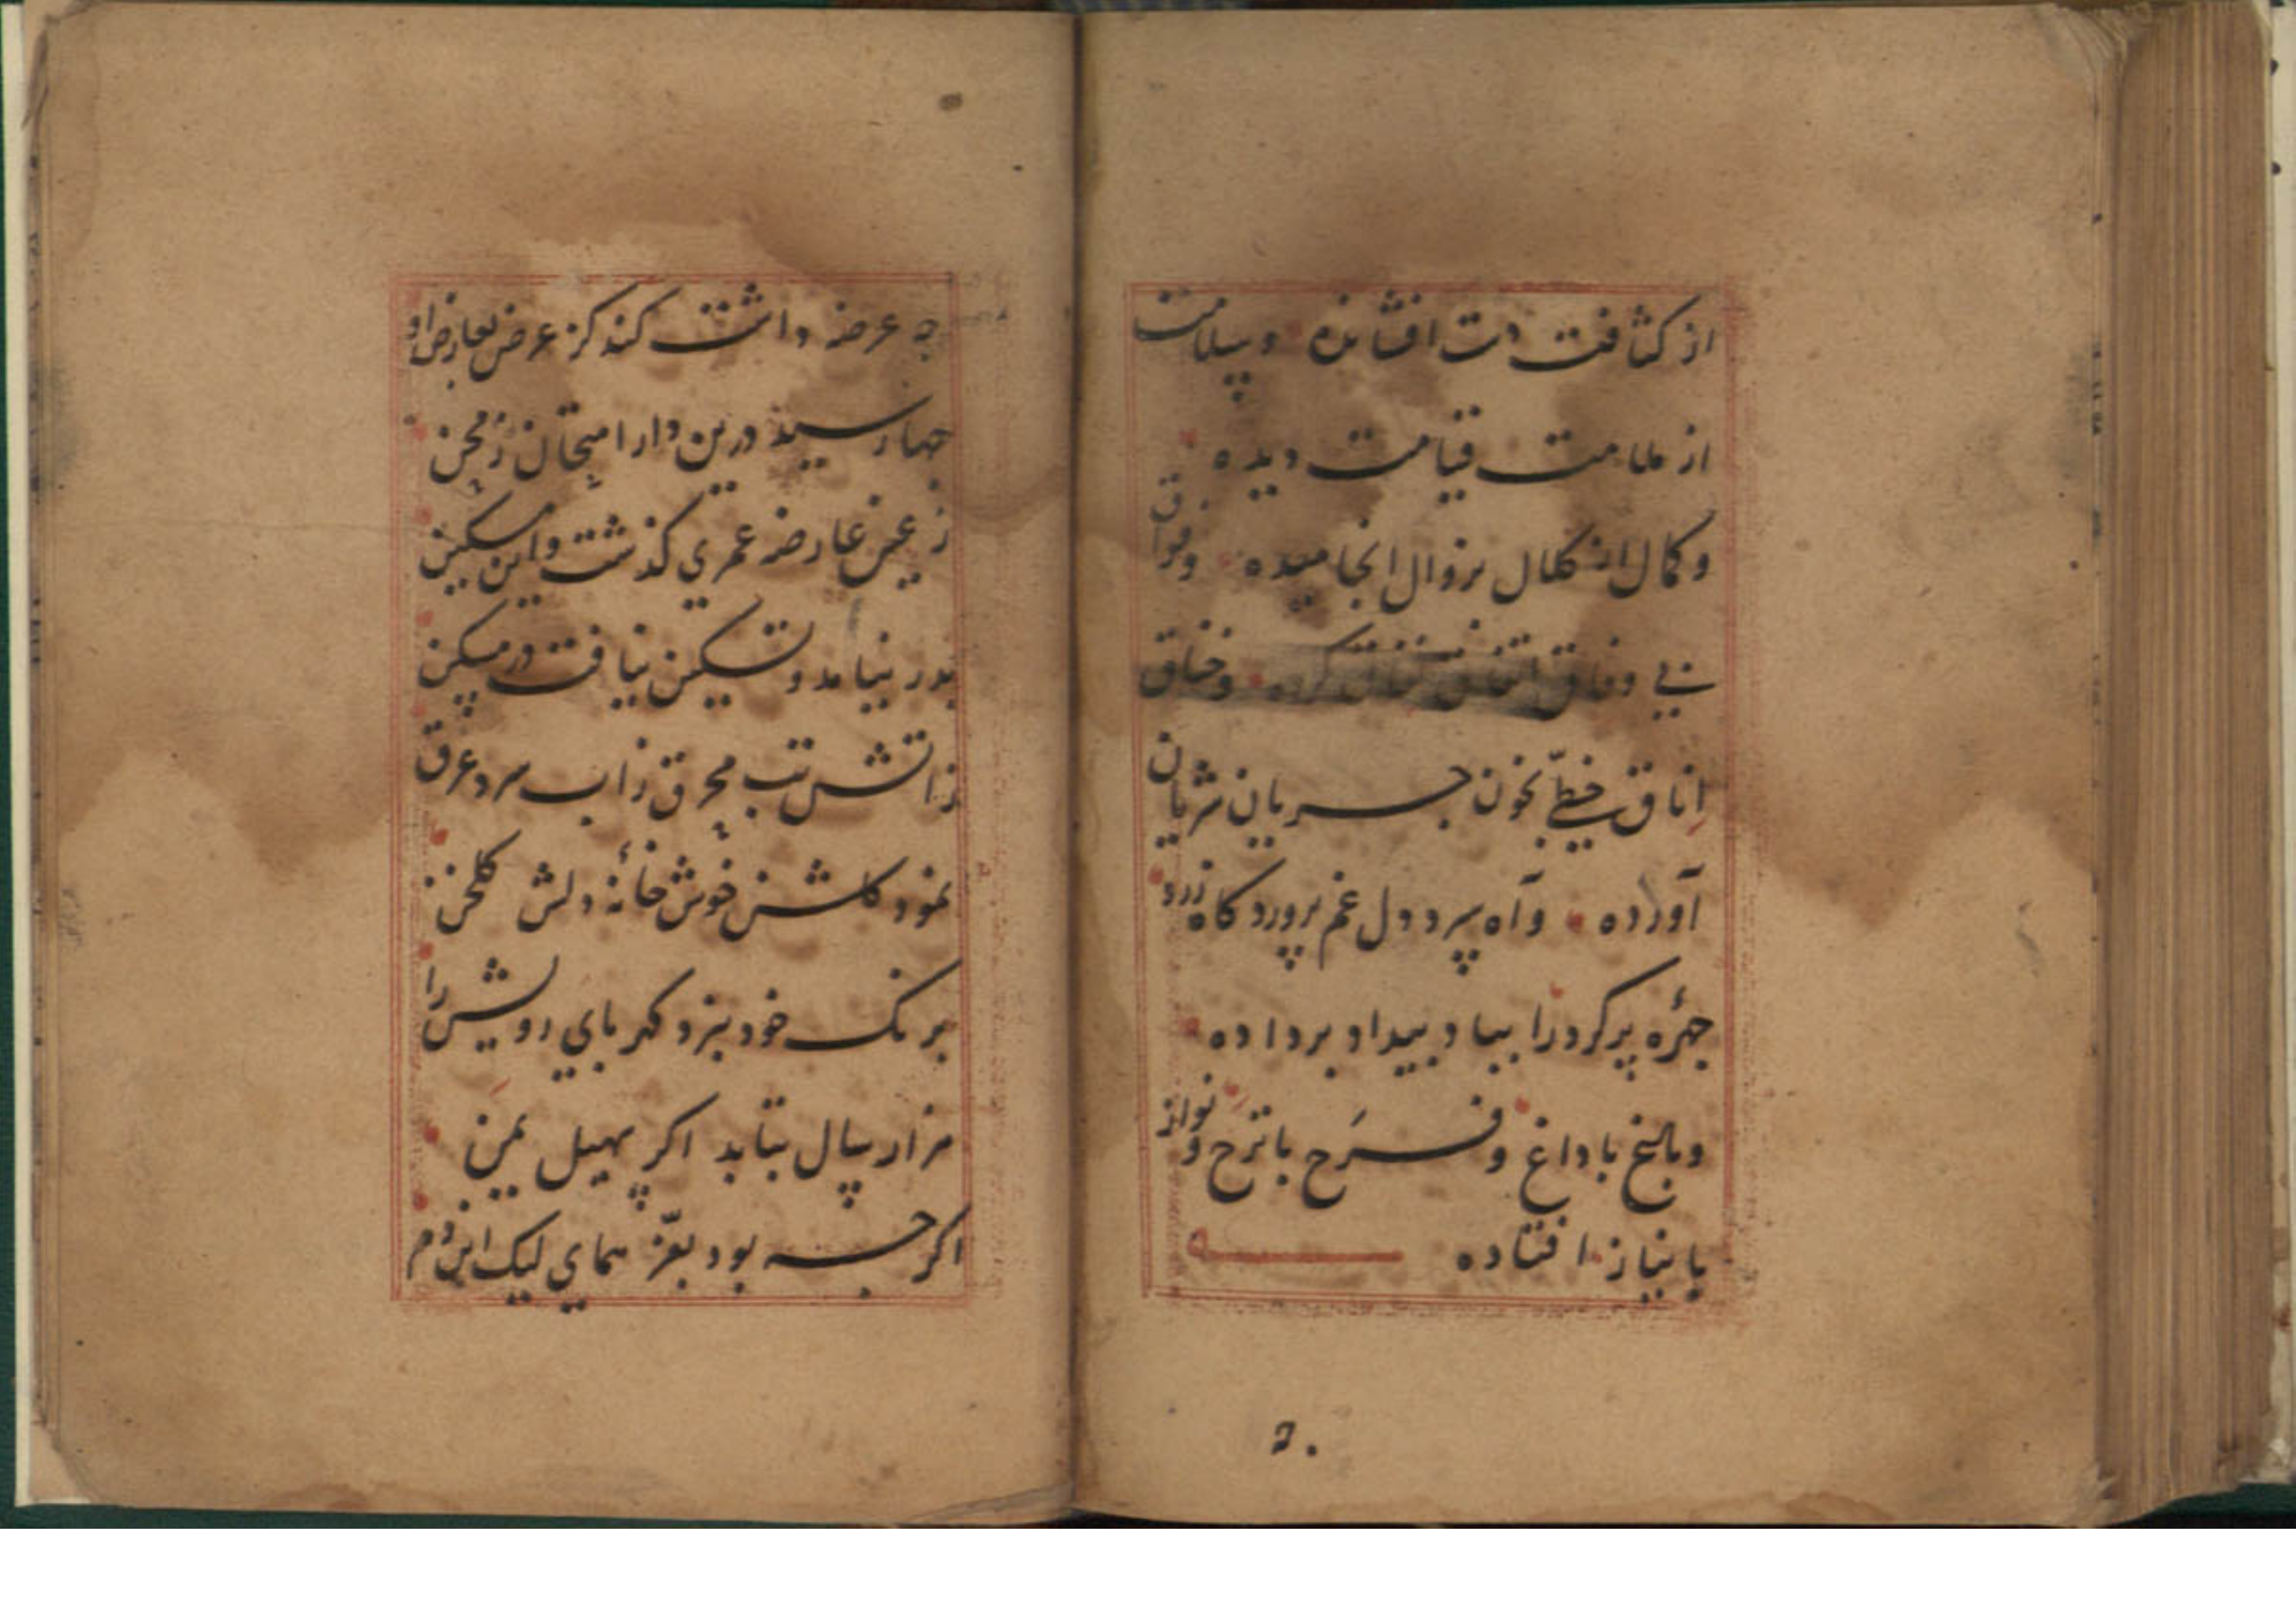 از کثافت دست افشانده وسلامت
از ملامت قیامت دیده
وکمال از کلال بزوال انجامیده وفراق
بی وفاق اتفاق نفاق کرده وخناق
اناق خطی بخون جریان شریان
آورده وآه سرد دل غم پرورد کاه زرد
چهرهٔ پرکرد را بباد بیداد برداده
وبالخ باداغ وفرح باترح ونواز
بانیاز افتاده
۵۰
چه عرضه داشت کند کز عرض بعارض او
چها رسید درین دار امتحان ز محن
ز عین عارضه عمری کذشت واین مسکین
بدر نیامد وتسکین نیافت در مسکن
ز آتش تب محرق ز آب سرد عرق
نمود کلشن خوش خانهٔ دلش کلخن
برنک خود نبزد کهربای رویش را
هزار سال بتابد اکر سهیل یمن
اکر چه بود بعز همای لیک این دم